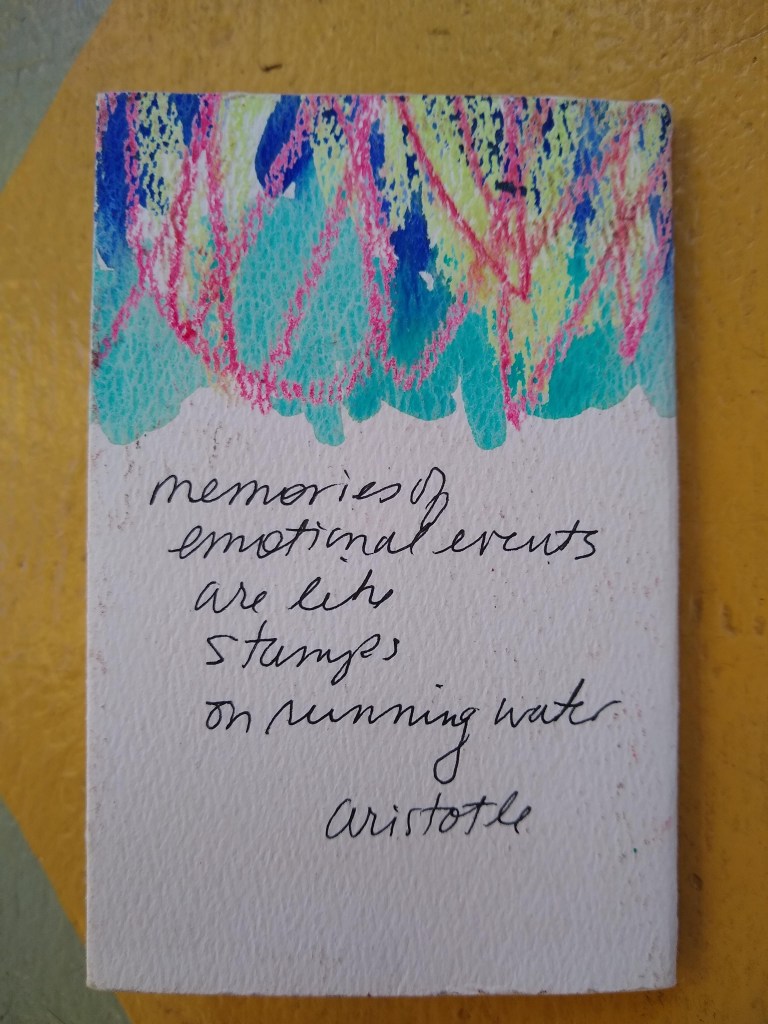 memories of
emotional events
are like
stamps
on running water
aristotle